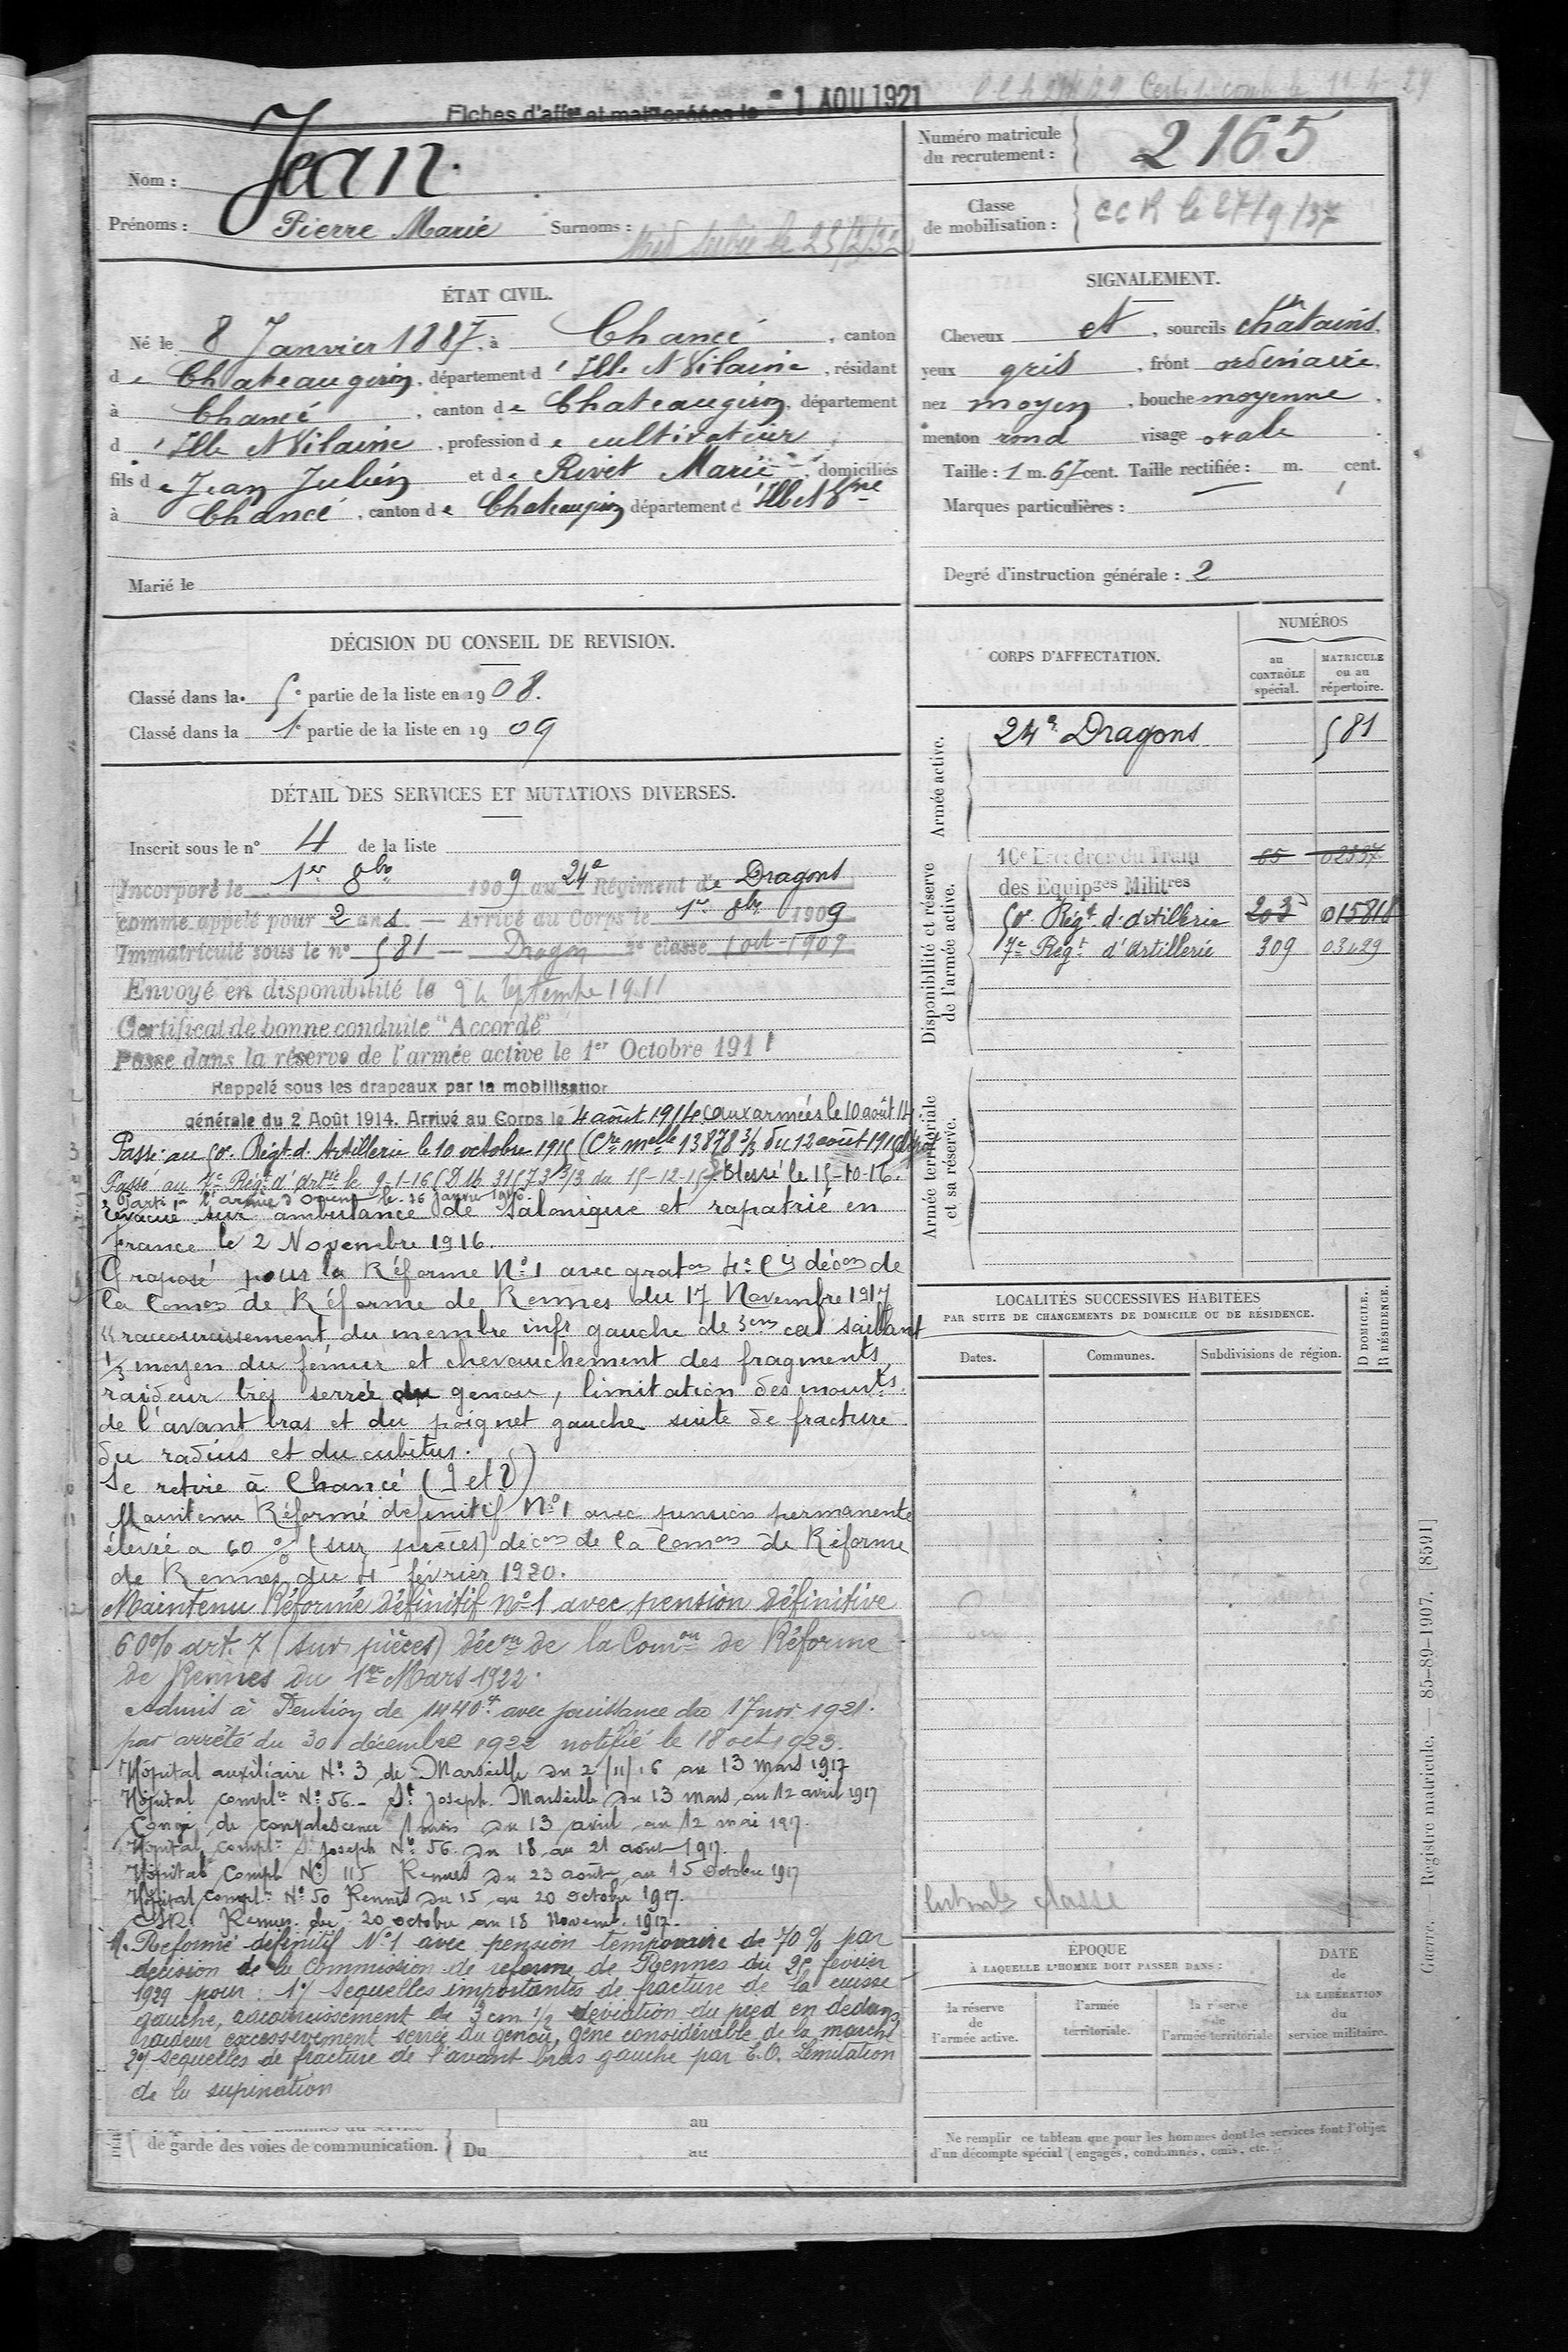 Fiches d'affon et maton créées le - 1 AOU 1921
Nom : Jean
Prénoms : Pierre Marie Surnoms :
Numéro matricule du recrutement : 2165
Classe de mobilisation : CCR le 27/9/37
ÉTAT CIVIL.
Né le 8 Janvier 1887, à Chancé, canton
de Chateaugiron, département d'Ille et Vilaine, résidant
à Chancé, canton de Chateaugiron, département
d'Ille et Vilaine, profession de cultivateur
fils de Jean Julien et de Rivet Marie, domiciliés
à Chancé, canton de Chateaugiron département d'Ille et Vne
Marié le
SIGNALEMENT.
Cheveux et, sourcils châtains,
yeux gris, front ordinaire,
nez moyen, bouche moyenne,
menton rond visage ovale
Taille : 1 m. 67 cent. Taille rectifiée : m. cent.
Marques particulières :
Degré d'instruction générale : 2
DÉCISION DU CONSEIL DE REVISION.
Classé dans la 5e partie de la liste en 1908.
Classé dans la 1e partie de la liste en 1909
DÉTAIL DES SERVICES ET MUTATIONS DIVERSES.
Inscrit sous le n° 4 de la liste
Incorporé le 1er 8bre 1909 au 24e Régiment de Dragons
comme appelé pour 2 ans — Arrivé au Corps le 1er 8bre 1909
Immatriculé sous le n° 581 — Dragon 2e classe 1 oct 1909
Envoyé en disponibilité le 24 Septembre 1911
Certificat de bonne conduite "Accordé"
Passé dans la réserve de l'armée active le 1er Octobre 1911
Rappelé sous les drapeaux par la mobilisation
générale du 2 Août 1914. Arrivé au Corps le 4 août 1914 (aux armées le 10 août 14
Passé au 50e Régt d'Artillerie le 10 octobre 1915 (Cre melle 13878 3/3 du 12 août 1915
Passe au 7e Régt d'Artie le 9-1-16 (D.M. 31573 3/3 du 15-12-15) Blessé le 15-10-16.
Parti pr l'armée d'Orient le 16 janvier 1916.
évacué sur ambulance de Salonique et rapatrié en
France le 2 Novembre 1916.
Proposé pour la Réforme N° 1 avec graton 4e Cie décon de
la Comon de Réforme de Rennes du 17 Novembre 1917
"raccourcissement du membre infr gauche de 3cm cal saillant
1/3 moyen du fémur et chevauchement des fragments
raideur très serrée du genou, limitation des mouvts
de l'avant bras et du poignet gauche suite de fracture
du radius et du cubitus.
Se retire à Chancé (I et V)
Maintenu Réformé définitif N° 1 avec pension permanente
élevée à 60 % (sur pièces) décon de la Comon de Réforme
de Rennes du 4 février 1920.
Maintenu Réformé définitif n° 1 avec pension définitive
60% art. 7 (sur pièces) décon de la Comon de Réforme
de Rennes du 1er Mars 1922.
Admis à Pension de 1440f avec jouissance du 17 nov 1921.
par arrêté du 30 décembre 1922 notifié le 18 oct 1923.
Hôpital auxiliaire N° 3 de Marseille du 2/11/16 au 13 mars 1917
Hôpital complre N° 56 - St Joseph. Marseille du 13 mars au 12 avril 1917
Congé de convalescence 1 mois du 13 avril au 12 mai 1917.
Hôpital complre St Joseph N° 56 du 18 au 21 août 1917.
Hôpital Compl N° 115 Rennes du 23 août au 15 Octobre 1917
Hôpital complre N° 50 Rennes du 15 au 20 octobre 1917.
CSR. Rennes du 20 octobre au 18 Novemb. 1917.
Reformé définitif N° 1 avec pension temporaire de 70 % par
décision de la Commission de reforme de Rennes du février
1929 pour : 1°/ sequelles importantes de fracture de la cuisse
gauche, raccourcissement de 3 cm 1/2 déviation du pied en dedans
raideur excessivement serrée du genou, gêne considérable de la marche
2°/ sequelles de fracture de l'avant bras gauche par E.O. Limitation
de la supination
au
de garde des voies de communication. Du au
CORPS D'AFFECTATION.
NUMÉROS
au CONTRÔLE spécial.
MATRICULE ou au répertoire.
Armée active.
24e Dragons 581
Disponibilité et réserve de l'armée active.
10e Escadron du Train 65 02337
des Equipges Militres
50e Régt d'Artillerie 203 015818
7e Régt d'Artillerie 309 03429
Armée territoriale et sa réserve.
LOCALITÉS SUCCESSIVES HABITÉES
PAR SUITE DE CHANGEMENTS DE DOMICILE OU DE RÉSIDENCE.
Dates. Communes. Subdivisions de région.
D DOMICILE.
R RÉSIDENCE.
classe
ÉPOQUE
À LAQUELLE L'HOMME DOIT PASSER DANS :
la réserve de l'armée active.
l'armée territoriale.
la réserve de l'armée territoriale
DATE de LA LIBÉRATION du service militaire.
Ne remplir ce tableau que pour les hommes dont les services font l'objet
d'un décompte spécial (engagés, condamnés, omis, etc.).
Guerre. Registre matricule. — 85-89-1907. [8591]